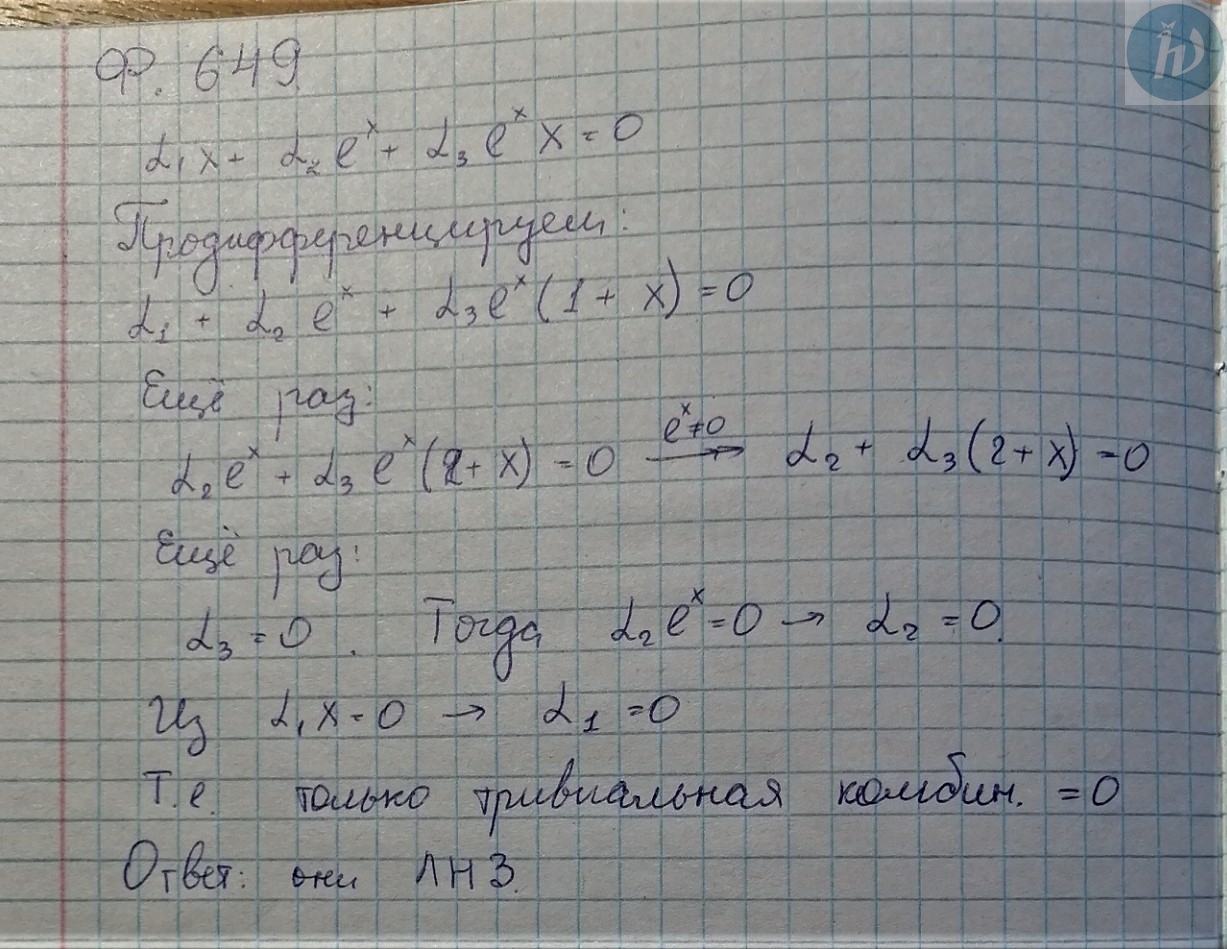 Ф. 649
α₁x + α₂eˣ + α₃eˣx = 0
Продифференцируем:
α₁ + α₂eˣ + α₃eˣ(1 + x) = 0
Ещё раз:
α₂eˣ + α₃eˣ(2 + x) = 0 —eˣ≠0→ α₂ + α₃(2 + x) = 0
Ещё раз:
α₃ = 0. Тогда α₂eˣ = 0 → α₂ = 0.
Из α₁x = 0 → α₁ = 0
Т.е. только тривиальная комбин. = 0
Ответ: они ЛНЗ.